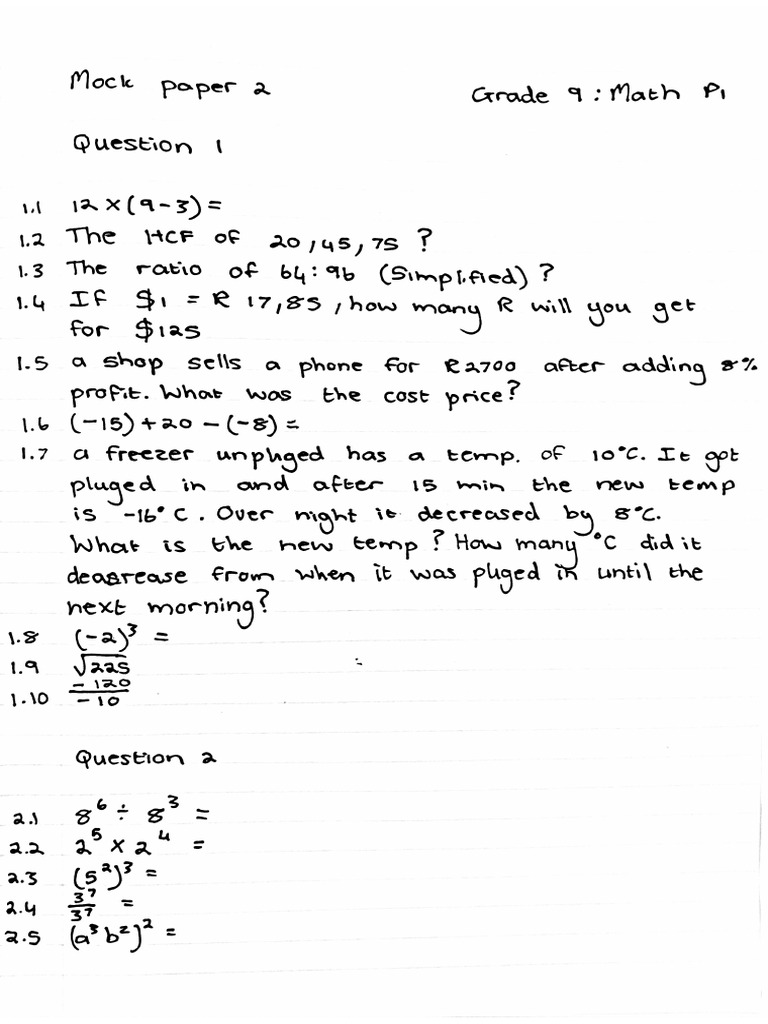 Mock paper 2
Grade 9 : Math P1
Question 1
1.1 12 × (9 - 3) =
1.2 The HCF of 20, 45, 75 ?
1.3 The ratio of 64 : 96 (Simplified) ?
1.4 If $1 = R 17,85, how many R will you get
for $125
1.5 a shop sells a phone for R2700 after adding 8%
profit. What was the cost price?
1.6 (-15) + 20 - (-8) =
1.7 a freezer unpluged has a temp. of 10°C. It got
pluged in and after 15 min the new temp
is -16°C. Over night it decreased by 8°C.
What is the new temp? How many °C did it
deacrease from when it was pluged in until the
next morning?
1.8 (-2)³ =
1.9 √225
1.10 -120/-10
Question 2
2.1 8⁶ ÷ 8³ =
2.2 2⁵ × 2⁴ =
2.3 (5²)³ =
2.4 3⁷/3⁷ =
2.5 (a³b²)² =